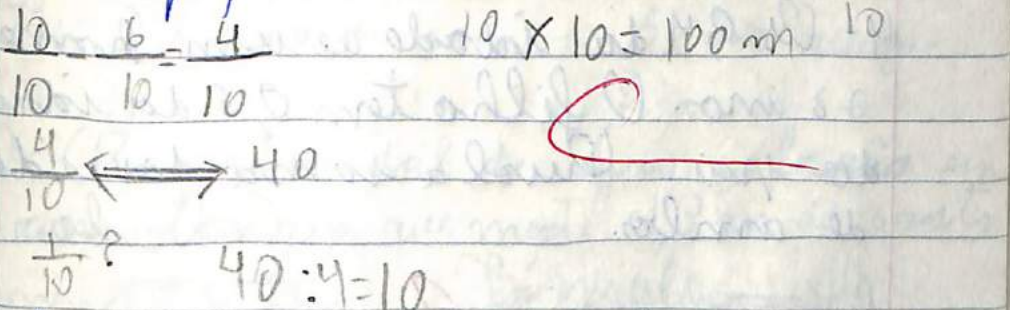 10/10 - 6/10 = 4/10 10 X 10 = 100 m 10
4/10 ⟺ 40
1/10 ? 40 : 4 = 10